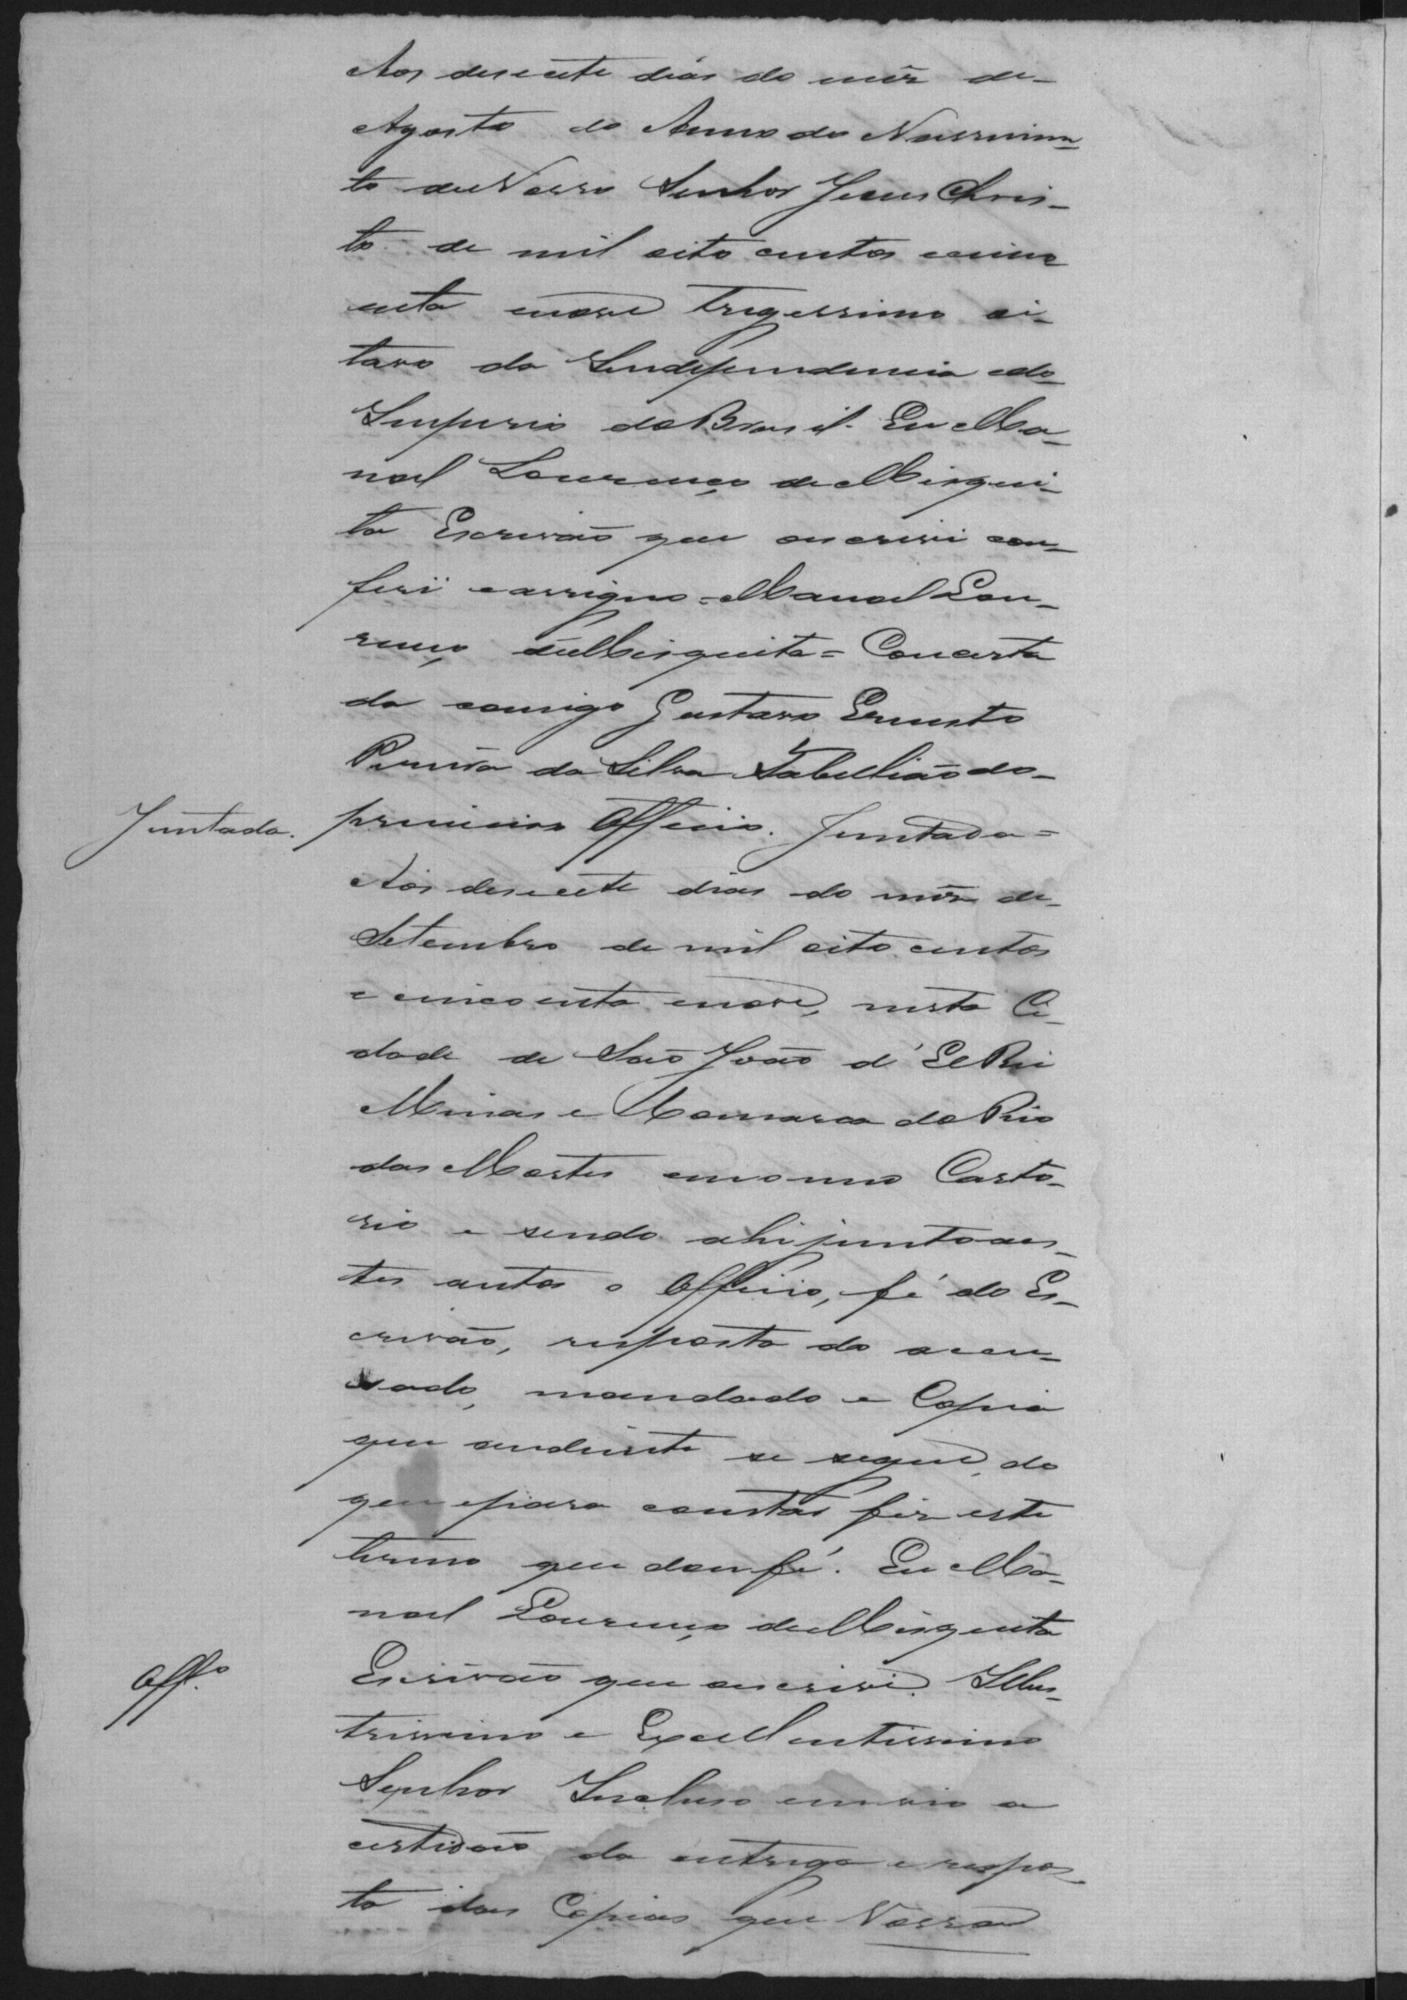 Aos desecete dias do mêz de
Agosto do Anno do Nascimen-
to de Nosso Senhor Jesus Chris-
to de mil oito centos e cinco
enta enove Trigessimo oi-
tavo da Independencia e do
Imperio do Brasil. Eu Ma-
noel Lourenço de Misqui-
ta Escrivão que escrivi con-
feri e assigno = Manoel Lou-
renço de Misquita = Concerta
da comigo Gustavo Ernesto
Pereira da Silva Tabellião do
Juntada. primeiro Officio. Juntada =
Aos desecete dias do mêz de
Setembro de mil oito centos
e cincoenta enove, nesta Ci-
dade de São João d' El Rei
Minas e Comarca do Rio
das Mortes em o meu Carto-
rio e sendo ahi junto aes-
tes autos o Officio, fé do Es-
crivão, resposta do accu-
sado, mandado e Copia
que audiente se segue, do
que epara constar fiz este
termo que dou fé. Eu Ma-
noel Lourenço de Misquita
Off.º Escrivão que escrivi. Illus-
trissimo e Excellentissimo
Senhor Incluso envio a
certidão da entrega e respos-
ta das Copias que Vossa